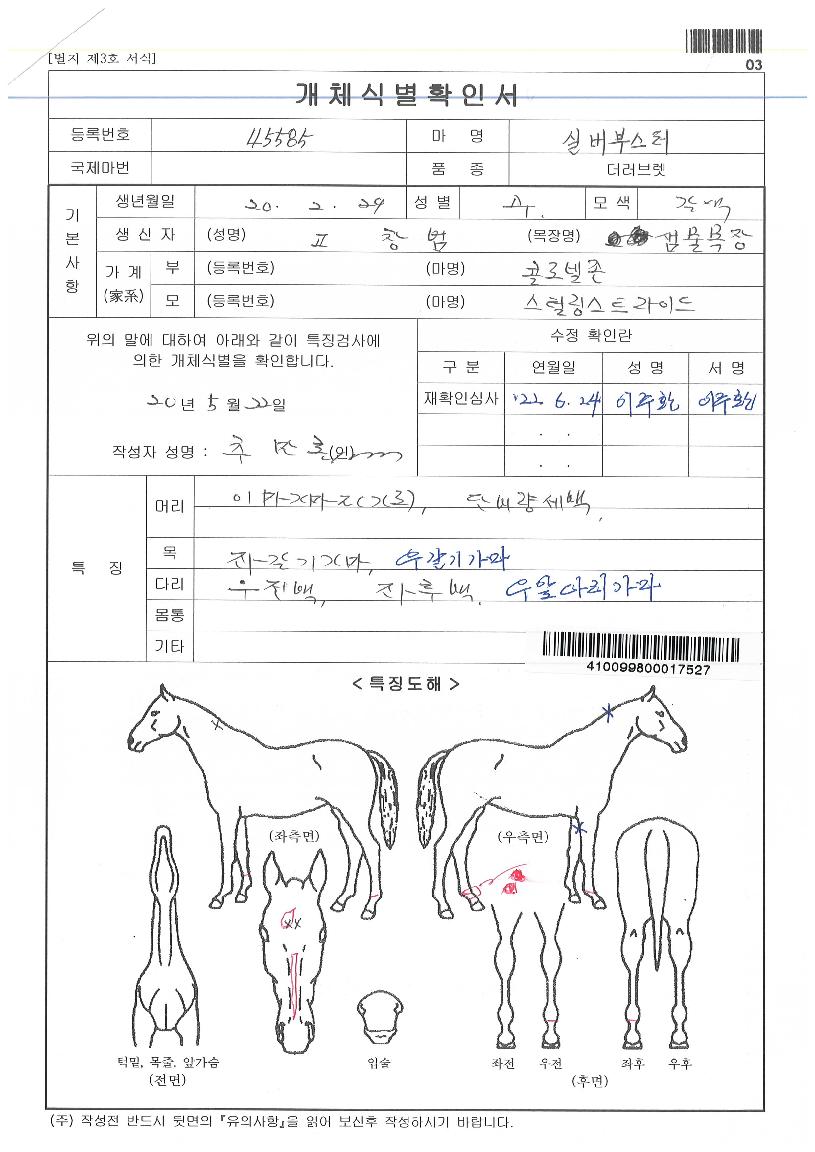 [별지 제3호 서식]
03
개체식별확인서
등록번호 45585 마 명 실버부스터
국제마번 품 종 더러브렛
기본사항
생년월일 20. 2. 29 성별 수. 모색
생 산 자 (성명) 표 창 범 (목장명) 샘물목장
가계(家系) 부 (등록번호) (마명) 콜로넬존
모 (등록번호) (마명) 스털링스트라이드
위의 말에 대하여 아래와 같이 특징검사에
의한 개체식별을 확인합니다.
20년 5월 22일
작성자 성명 : 추 만 호 (인)
수정 확인란
구 분 연월일 성 명 서 명
재확인심사 '22. 6. 24 이주환 이주환
. .
. .
특 징
머리
목 좌갈기가마, 우갈기가마
다리 우전백, 좌후백. 우앞다리가마
몸통
기타
410099800017527
< 특징도해 >
(좌측면)
(우측면)
턱밑, 목줄, 앞가슴
(전면)
입술
좌전 우전 좌후 우후
(후면)
(주) 작성전 반드시 뒷면의 『유의사항』을 읽어 보신후 작성하시기 바랍니다.